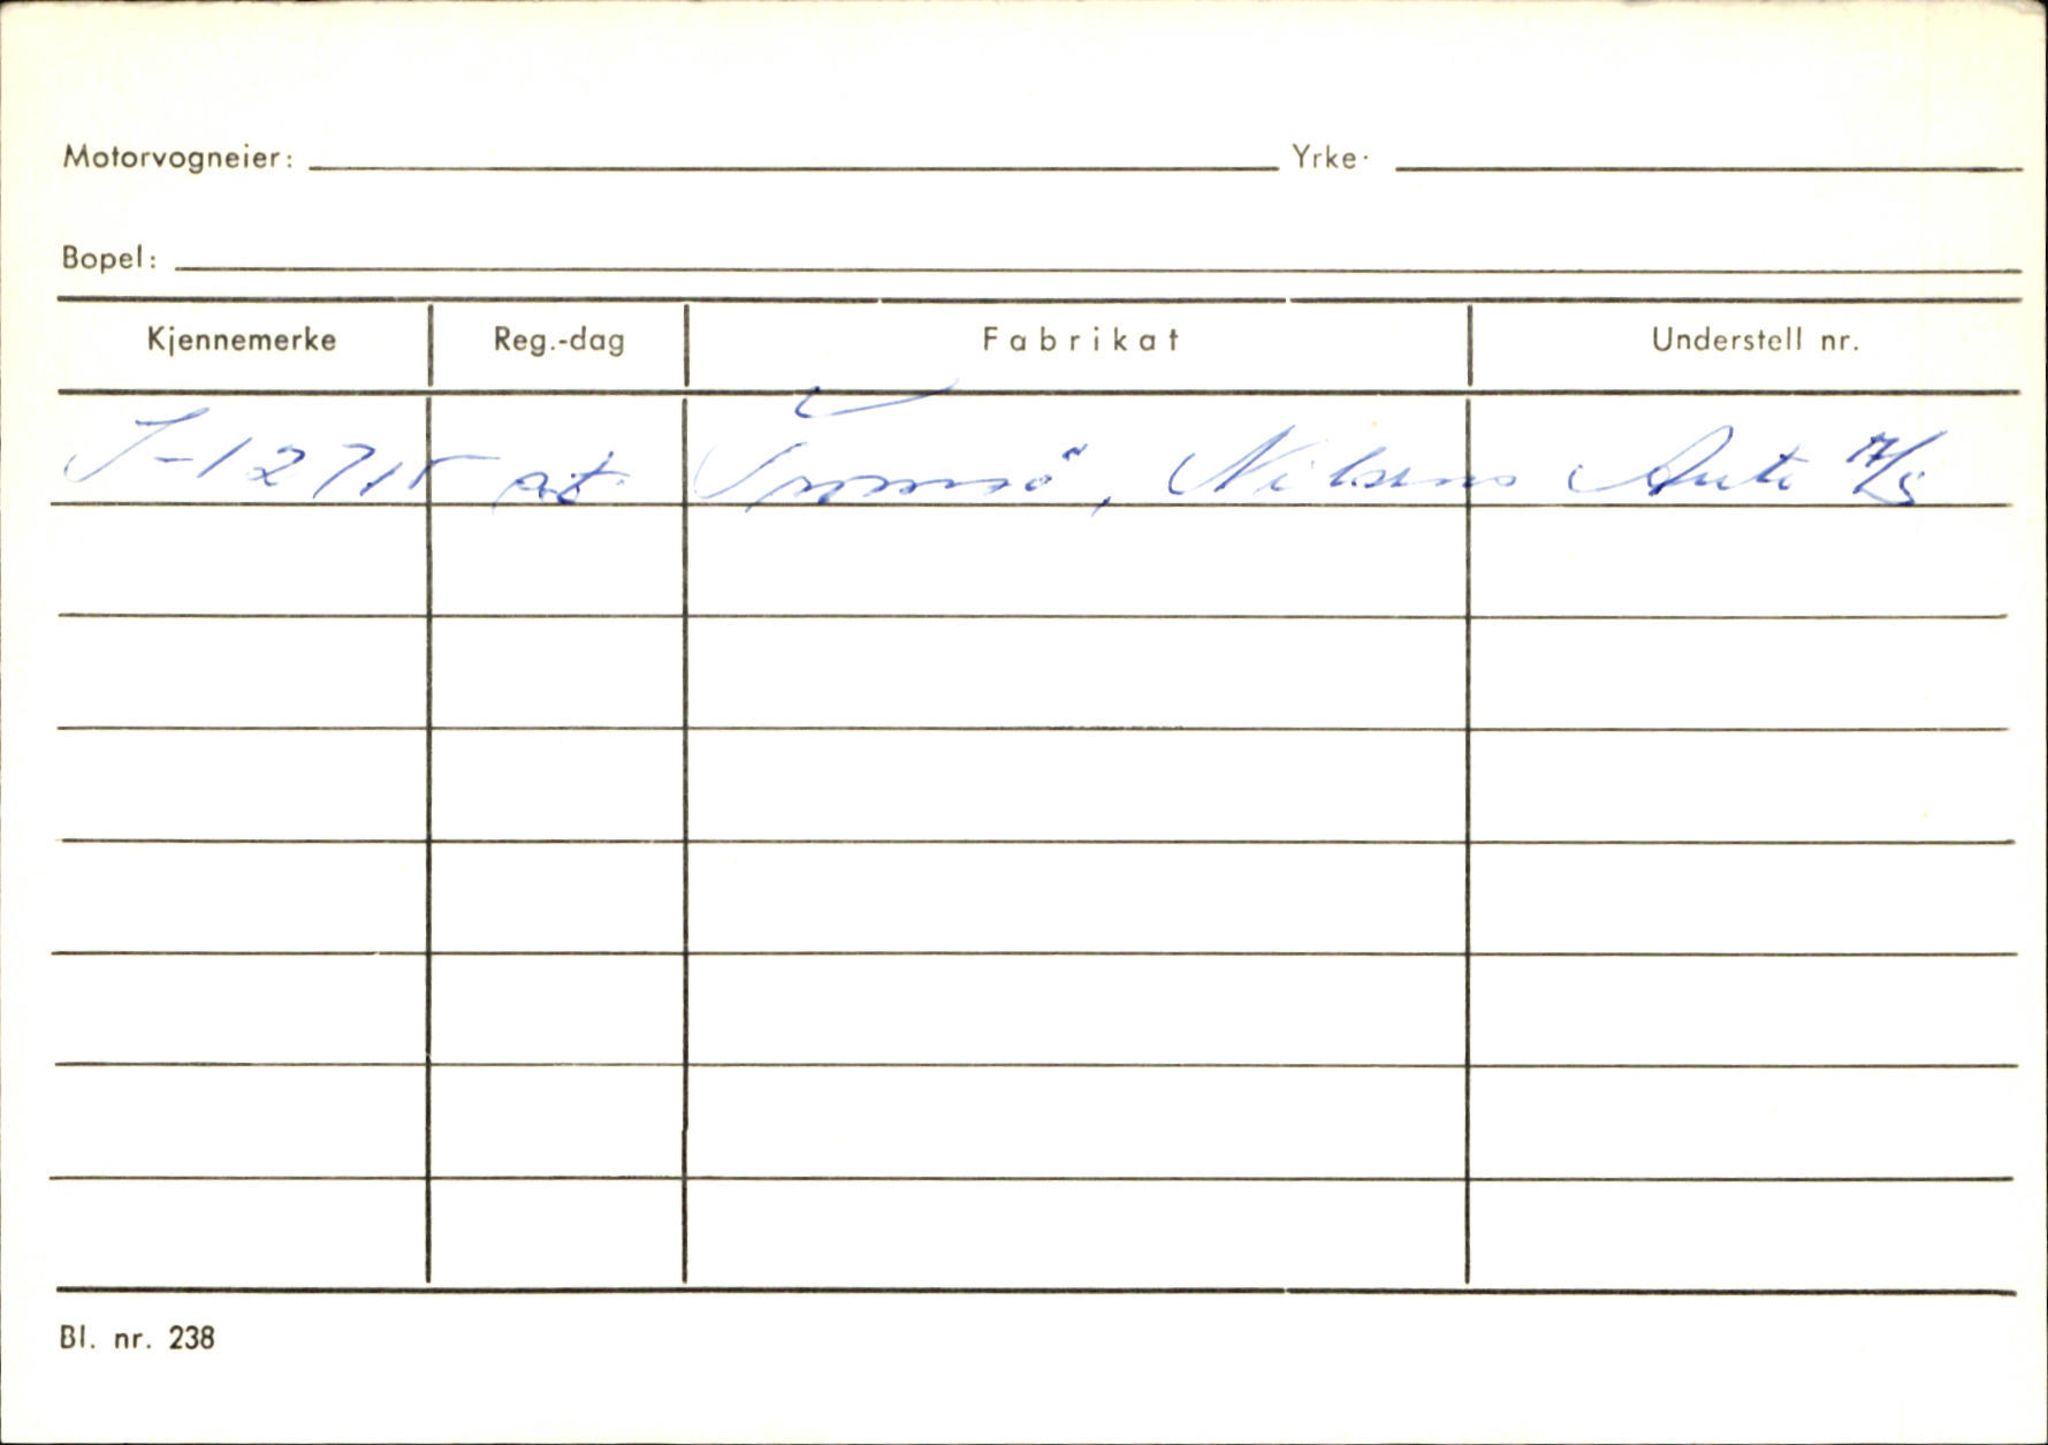 Motorvogneier: Yrke·
Bopel:
Kjennemerke Reg.-dag Fabrikat Understell nr.
S-12715 at Tromsø, Nilsens Auto A/S
Bl. nr. 238